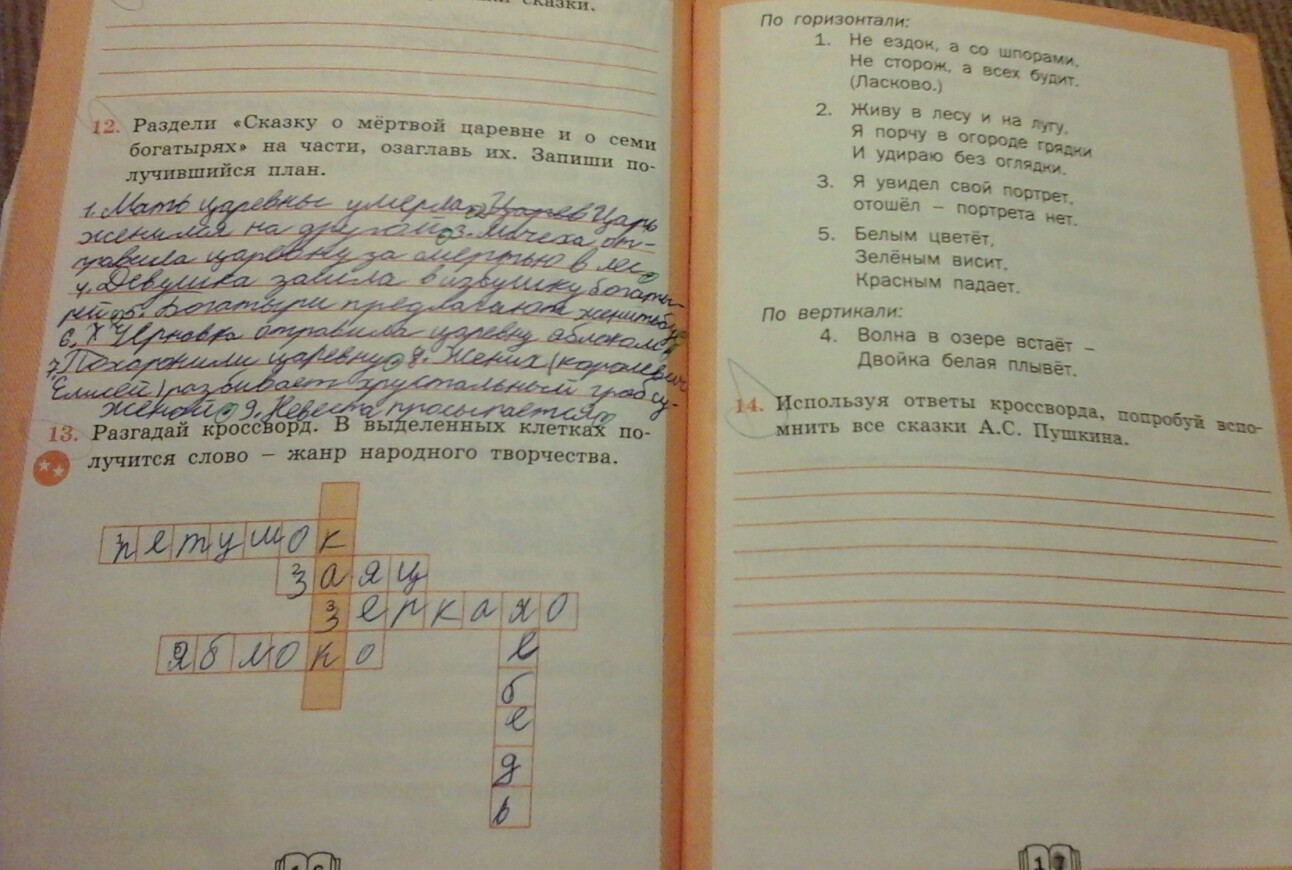 сказки.
12. Раздели «Сказку о мёртвой царевне и о семи
богатырях» на части, озаглавь их. Запиши по-
лучившийся план.
1. Мать царевны умерла. 2. Царь
женился на другой. 3. Мачеха от-
правила царевну за смертью в лес.
4. Девушка зашла в избушку богаты-
рей. 5. Богатыри предлагают женитьбу.
6. Чернавка отравила царевну яблоком.
7. Похоронили царевну. 8. Жених (королевич
Елисей) разбивает хрустальный гроб с
женой. 9. Невеста просыпается.
13. Разгадай кроссворд. В выделенных клетках по-
лучится слово – жанр народного творчества.
петушок
заяц
зеркало
яблоко
лебедь
По горизонтали:
1. Не ездок, а со шпорами,
Не сторож, а всех будит.
(Ласково.)
2. Живу в лесу и на лугу,
Я порчу в огороде грядки
И удираю без оглядки.
3. Я увидел свой портрет,
отошёл – портрета нет.
5. Белым цветёт,
Зелёным висит,
Красным падает.
По вертикали:
4. Волна в озере встаёт –
Двойка белая плывёт.
14. Используя ответы кроссворда, попробуй вспо-
мнить все сказки А.С. Пушкина.
17